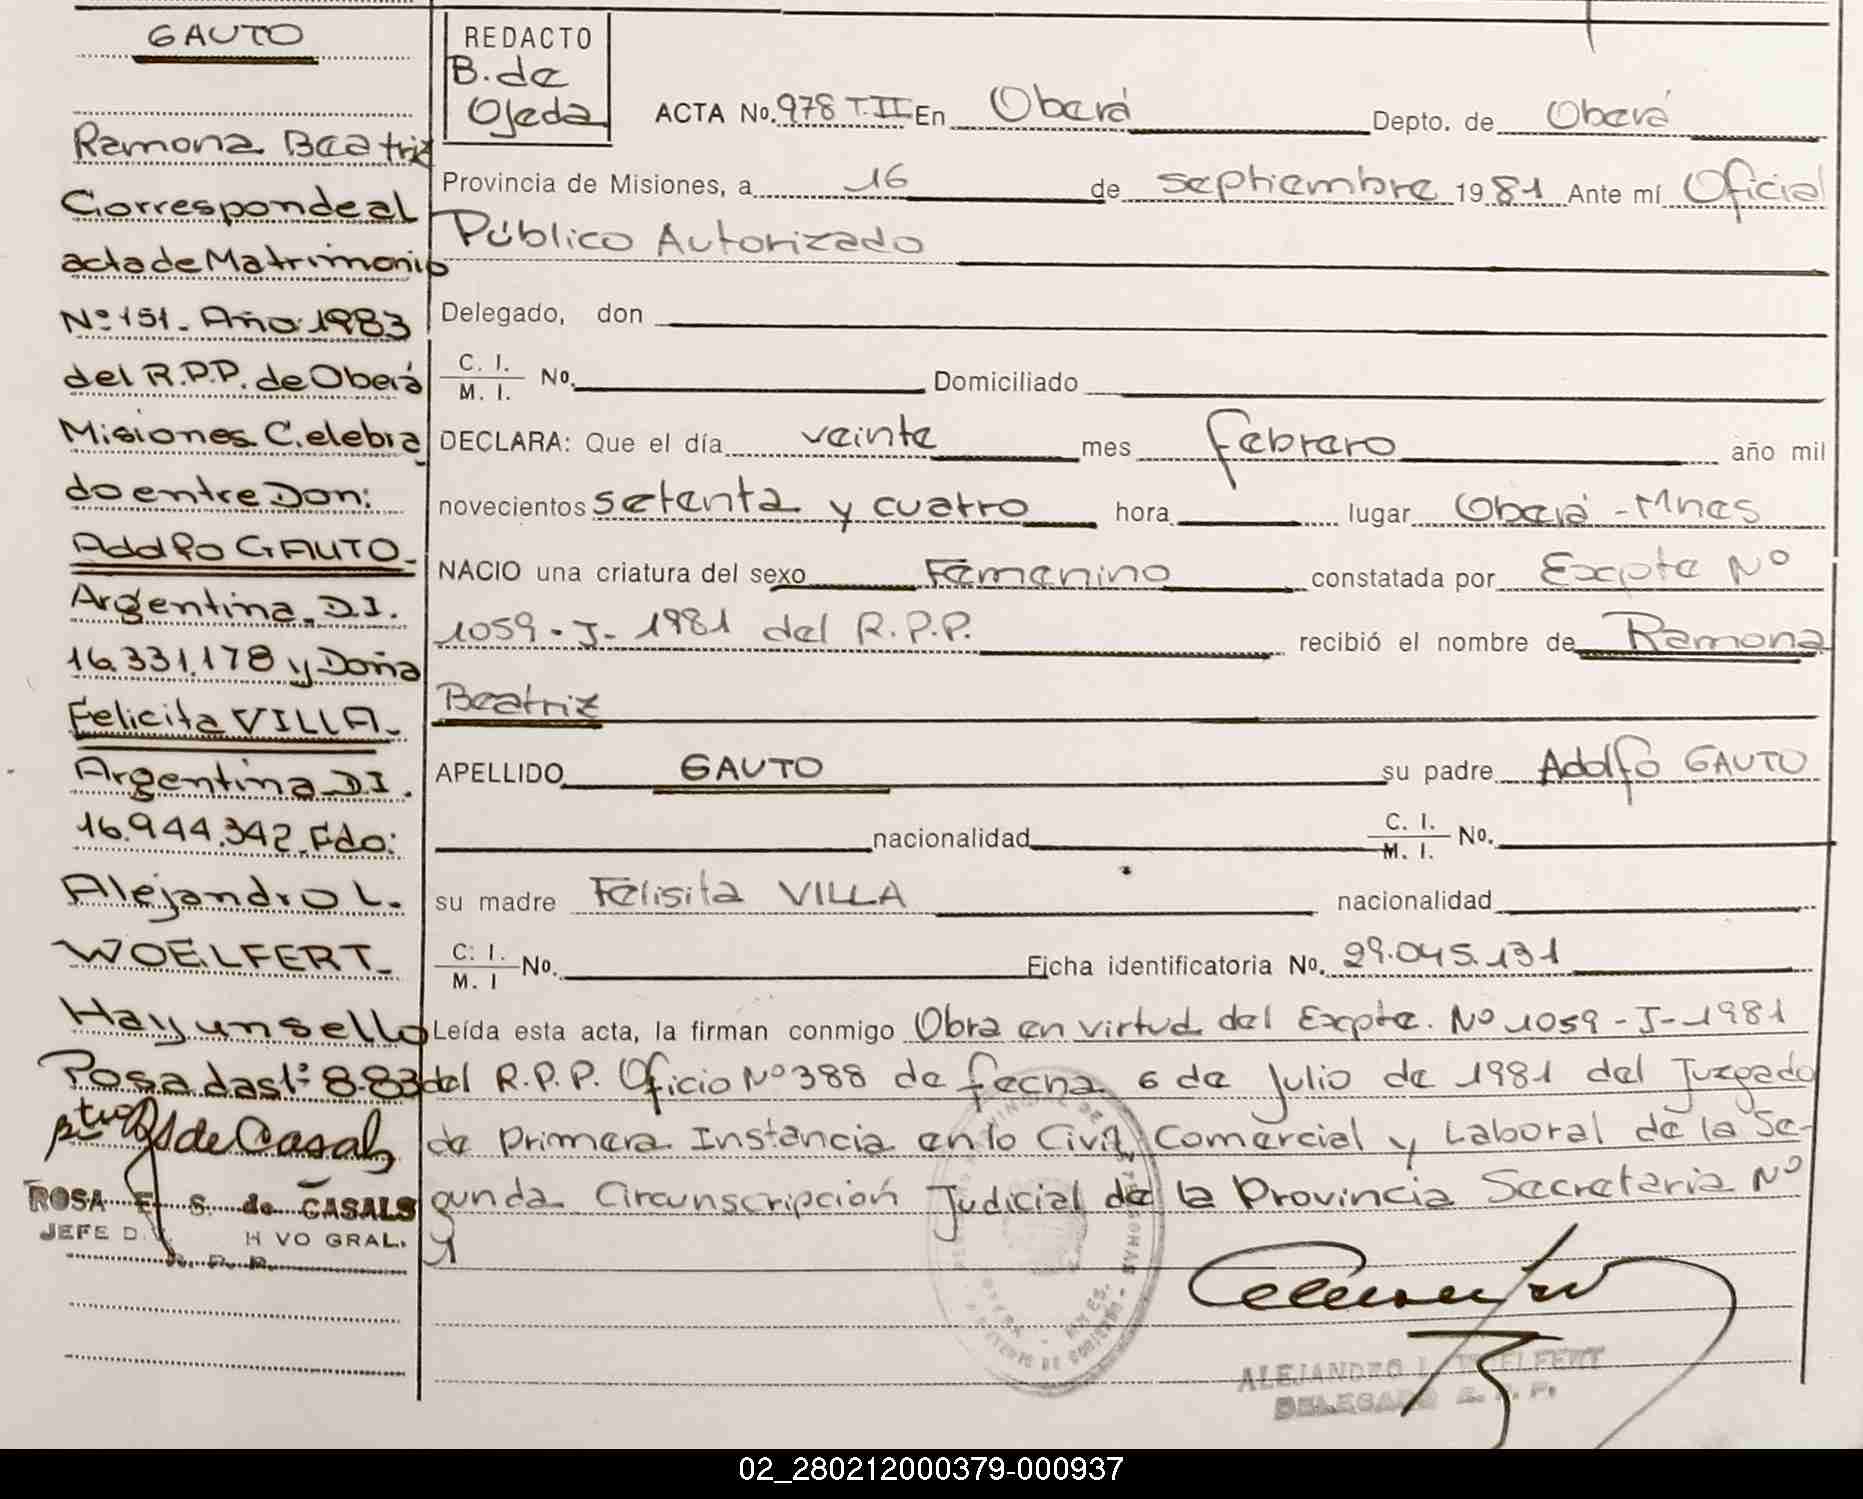 GAUTO
Ramona Beatriz
Corresponde al
acta de Matrimonio
Nº 151. Año 1983
del R.P.P. de Oberá
Misiones Celebra
do entre Don:
Adolfo GAUTO.
Argentina. D.I.
16.331.178 y Doña
Felicita VILLA.
Argentina D.I.
16.944.342. Fdo:
Alejandro L.
WOELFERT.
Hay un sello
Posadas 1º 8.83
de Casals
ROSA E. S. de CASALS
JEFE D. H VO GRAL.
R. P. P.
REDACTO
B. de
Ojeda
ACTA No. 978 T.II En Oberá Depto. de Oberá
Provincia de Misiones, a 16 de septiembre 1981 Ante mí Oficial
Público Autorizado
Delegado, don
C. I.
M. I. No. Domiciliado
DECLARA: Que el día veinte mes febrero año mil
novecientos setenta y cuatro hora lugar Oberá - Mnes
NACIO una criatura del sexo Femenino constatada por Expte Nº
1059 - J - 1981 del R.P.P. recibió el nombre de Ramona
Beatriz
APELLIDO GAUTO su padre Adolfo GAUTO
nacionalidad C. I.
M. I. No.
su madre Felisita VILLA nacionalidad
C. I.
M. I No. Ficha identificatoria No. 29.045.131
Leída esta acta, la firman conmigo Obra en virtud del Expte. Nº 1059 - J - 1981
del R.P.P. Oficio Nº 388 de fecha 6 de Julio de 1981 del Juzgado
de Primera Instancia en lo Civil, Comercial y Laboral de la Se-
gunda Circunscripción Judicial de la Provincia Secretaria Nº
1
ALEJANDRO L. WOELFERT
DELEGADO R. P. P.
02_280212000379-000937